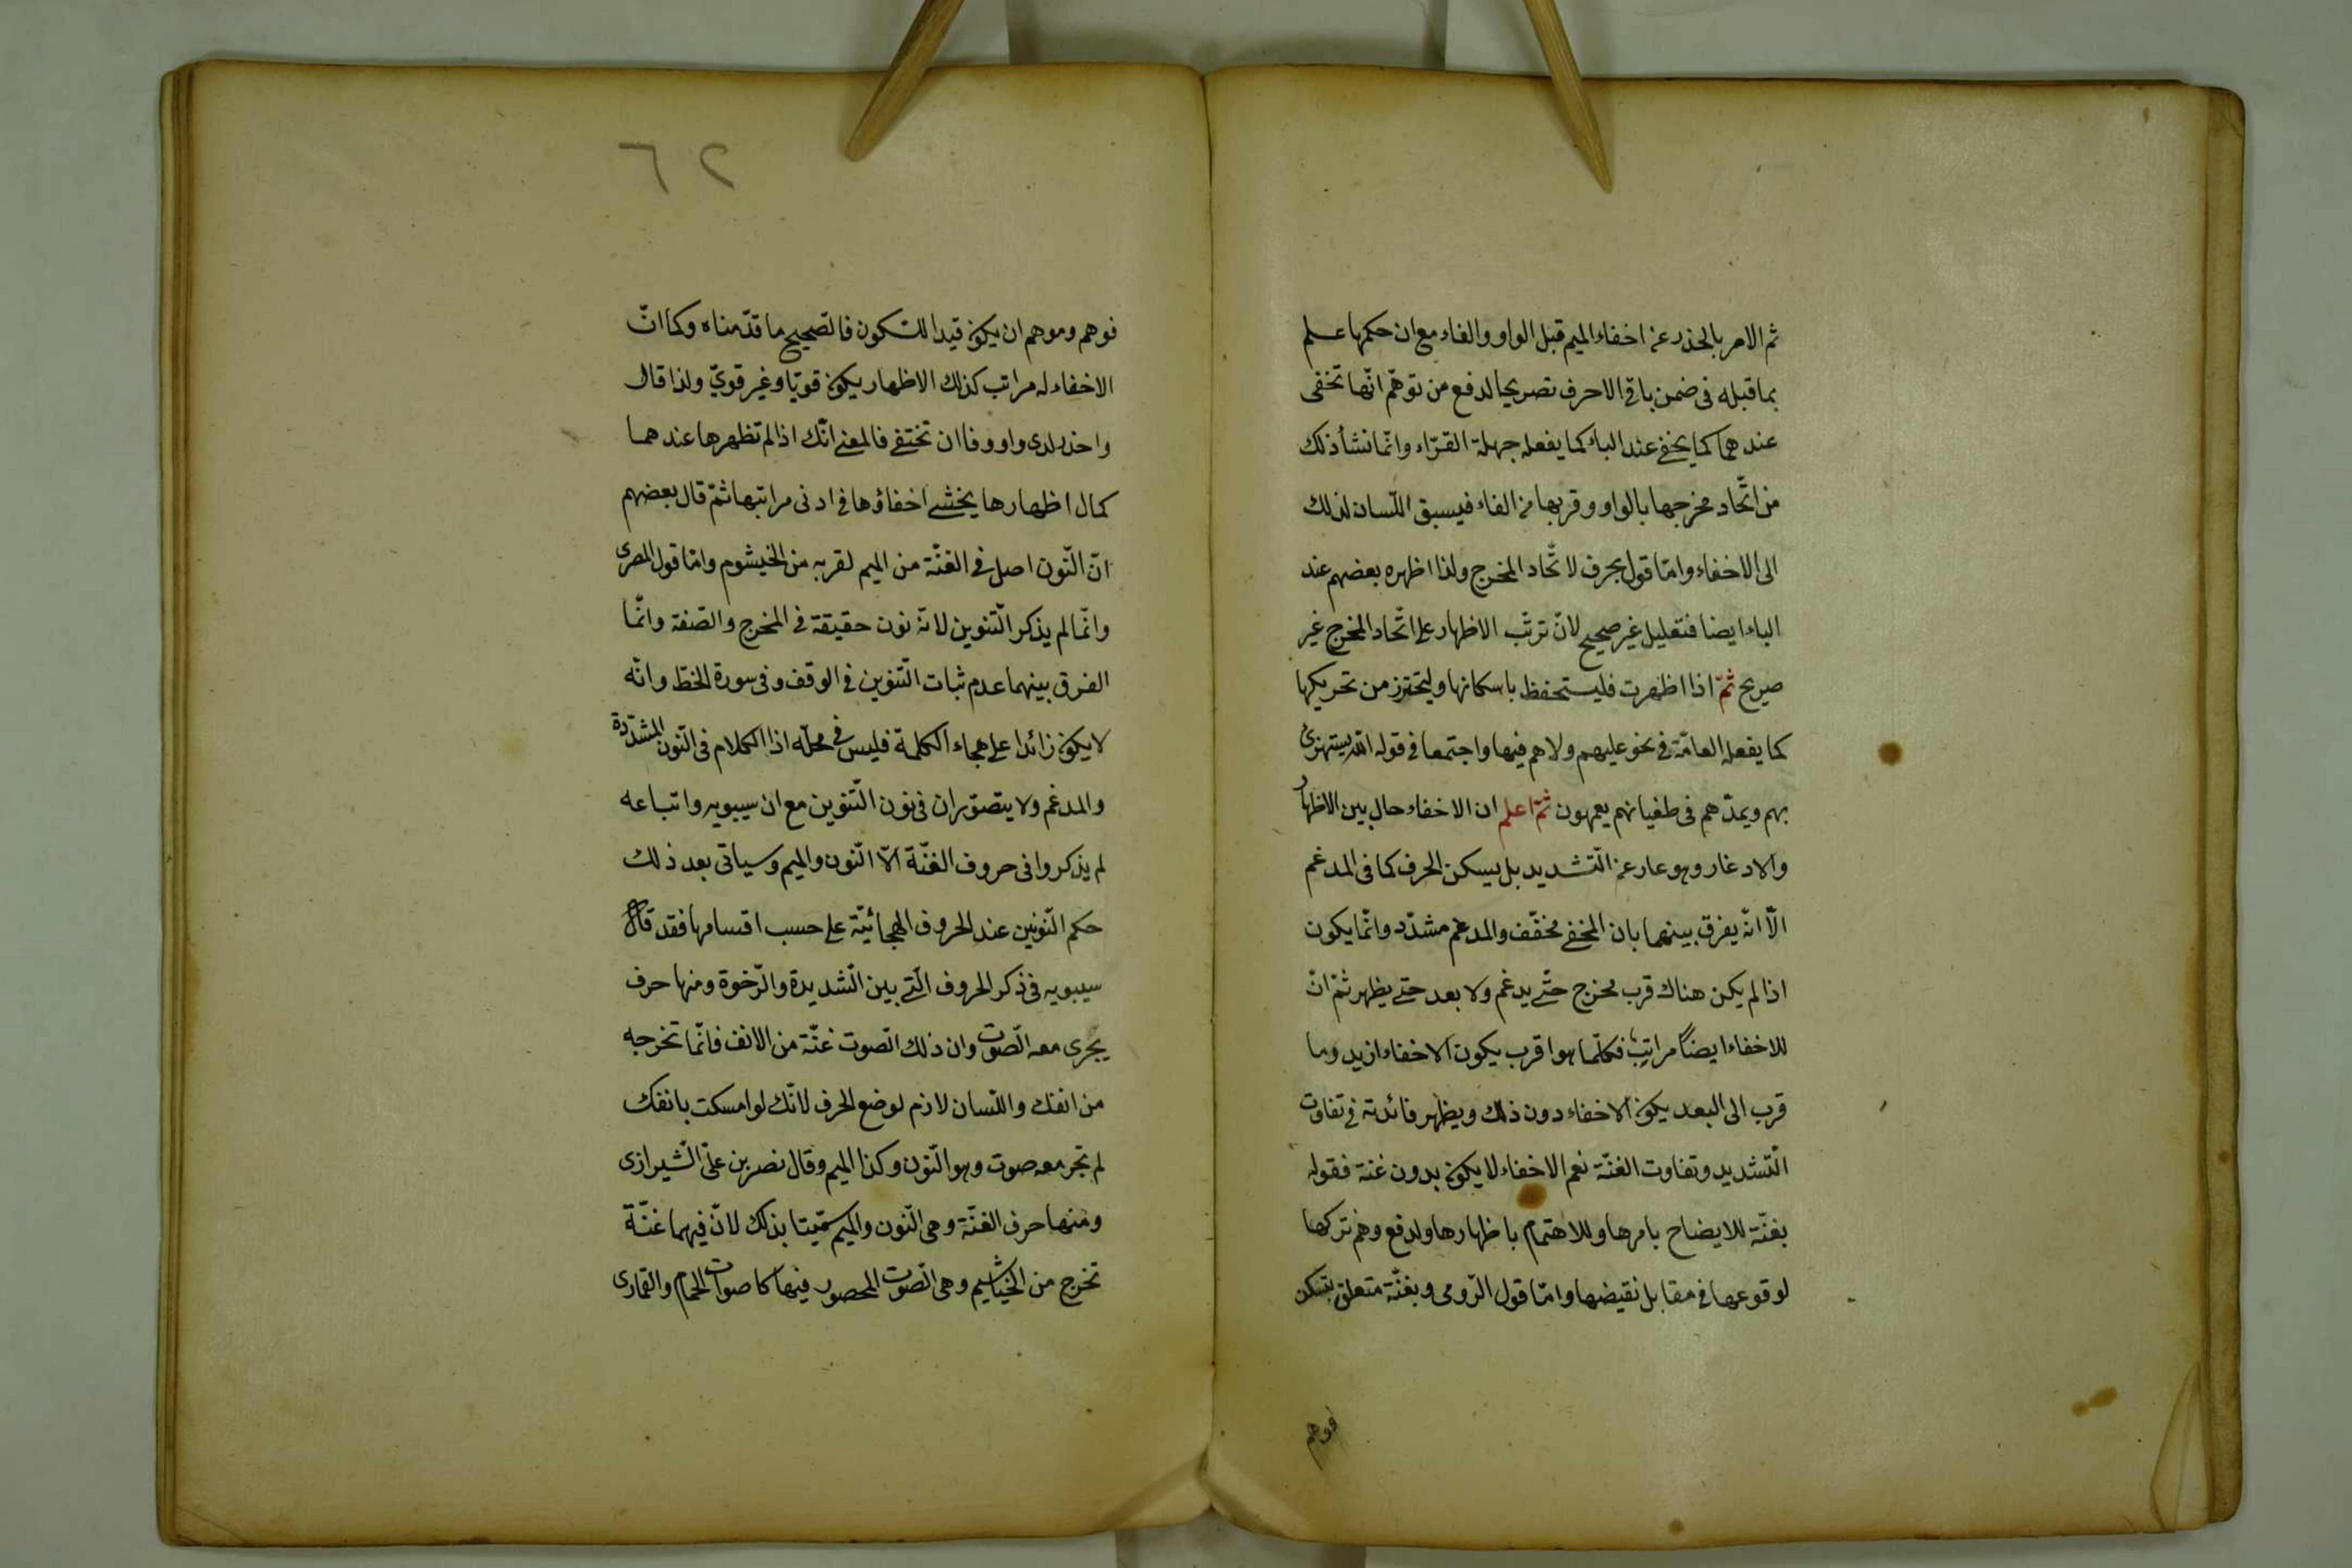 ثم الامر بالحذر عن اخفاء الميم قبل الواو والفاء مع ان حكمها علم
بما قبله فى ضمن باقى الاحرف تصريحا لدفع من توهّم انّها تخفى
عندهما كما يخفى عند الباء كما يفعله جهلة القرّاء وانّما نشأ ذلك
من اتّحاد مخرجها بالواو وقربها من الفاء فيسبق اللّسان لذلك
الى الاخفاء وامّا قول بحرف لاتّحاد المخرج ولذا اظهره بعضهم عند
الباء ايضا فتعليل غير صحيح لانّ ترتّب الاظهار على اتّحاد المخرج غير
صريح ثمّ اذا اظهرت فليستحفظ باسكانها وليتحترز من تحريكها
كما يفعله العامّة فى نحو عليهم ولا هم فيها واجتمعا فى قوله الله يستهزئ
بهم ويمدّهم فى طغيانهم يعمهون ثمّ اعلم ان الاخفاء حال بين الاظهار
والادغار وهو عار عن التّشديد بل يسكن الحرف كما فى المدغم
الّا انّه يفرق بينهما بان المخفى مخفّف والمدغم مشدّد وانّما يكون
اذا لم يكن هناك قرب مخرج حتّى يدغم ولا بعد حتى يظهر ثمّ انّ
للاخفاء ايضاً مراتب فكلّما هو اقرب يكون الاخفاء ازيد وما
قرب الى البعد يكون الاخفاء دون ذلك ويظهر فائدته فى تفاوت
التّشديد وتفاوت الغنّة نعم الاخفاء لا يكون بدون غنة فقوله
بغنّة للايضاح بامرها وللاهتمام باظهارها ولدفع وهم تركها
لوقوعها فى مقابل نقيضها وامّا قول الرّومى وبغنّة متعلق بتسكن
فوهم
٦٢
فوهم وموهم ان يكون قيدا للسّكون فالصّحيح ما قدّمناه وكما انّ
الاخفاء له مراتب كذلك الاظهار يكون قويّا وغير قوىّ ولذا قال
واحذر لدى واو وفا ان تختفى فالمعنى انّك اذا لم تظهرها عندهما
كمال اظهارها يخشى اخفاؤها فى ادنى مراتبها ثمّ قال بعضهم
انّ النّون اصل فى الغنّة من الميم لقربه من الخيشوم وامّا قول المصرى
وانّما لم يذكر التّنوين لانّه نون حقيقة فى المخرج والصّفة وانّما
الفرق بينهما عدم ثبات التّنوين فى الوقف وفى سورة الخطّ وانّه
لا يكون زائدا على هجاء الكلمة فليس فى محلّه اذا الكلام فى النّون المشدّدة
والمدغم ولا يتصوّران فى نون التّنوين مع ان سيبويه واتباعه
لم يذكروا فى حروف الغنّة الّا النّون والميم وسياتى بعد ذلك
حكم النّونين عند الحروف الهجائيّة على حسب اقسامها فقد قال
سيبويه فى ذكر الحروف الّتى بين الشّديدة والرّخوة ومنها حرف
يجرى معه الصّوت وان ذلك الصّوت غنّة من الانف فانّما تخرجه
من انفك واللّسان لازم لوضع الحرف لانّك لو امسكت بانفك
لم تجر معه صوت وهو النّون وكذا الميم وقال نصر بن علىّ الشّيرازى
ومنها حرف الغنّة وهى النّون والميم سمّيتا بذلك لانّ فيهما غنّة
تخرج من الخياشيم وهى الصّوت المحصور فيها كاصوات الحمام والقمارى